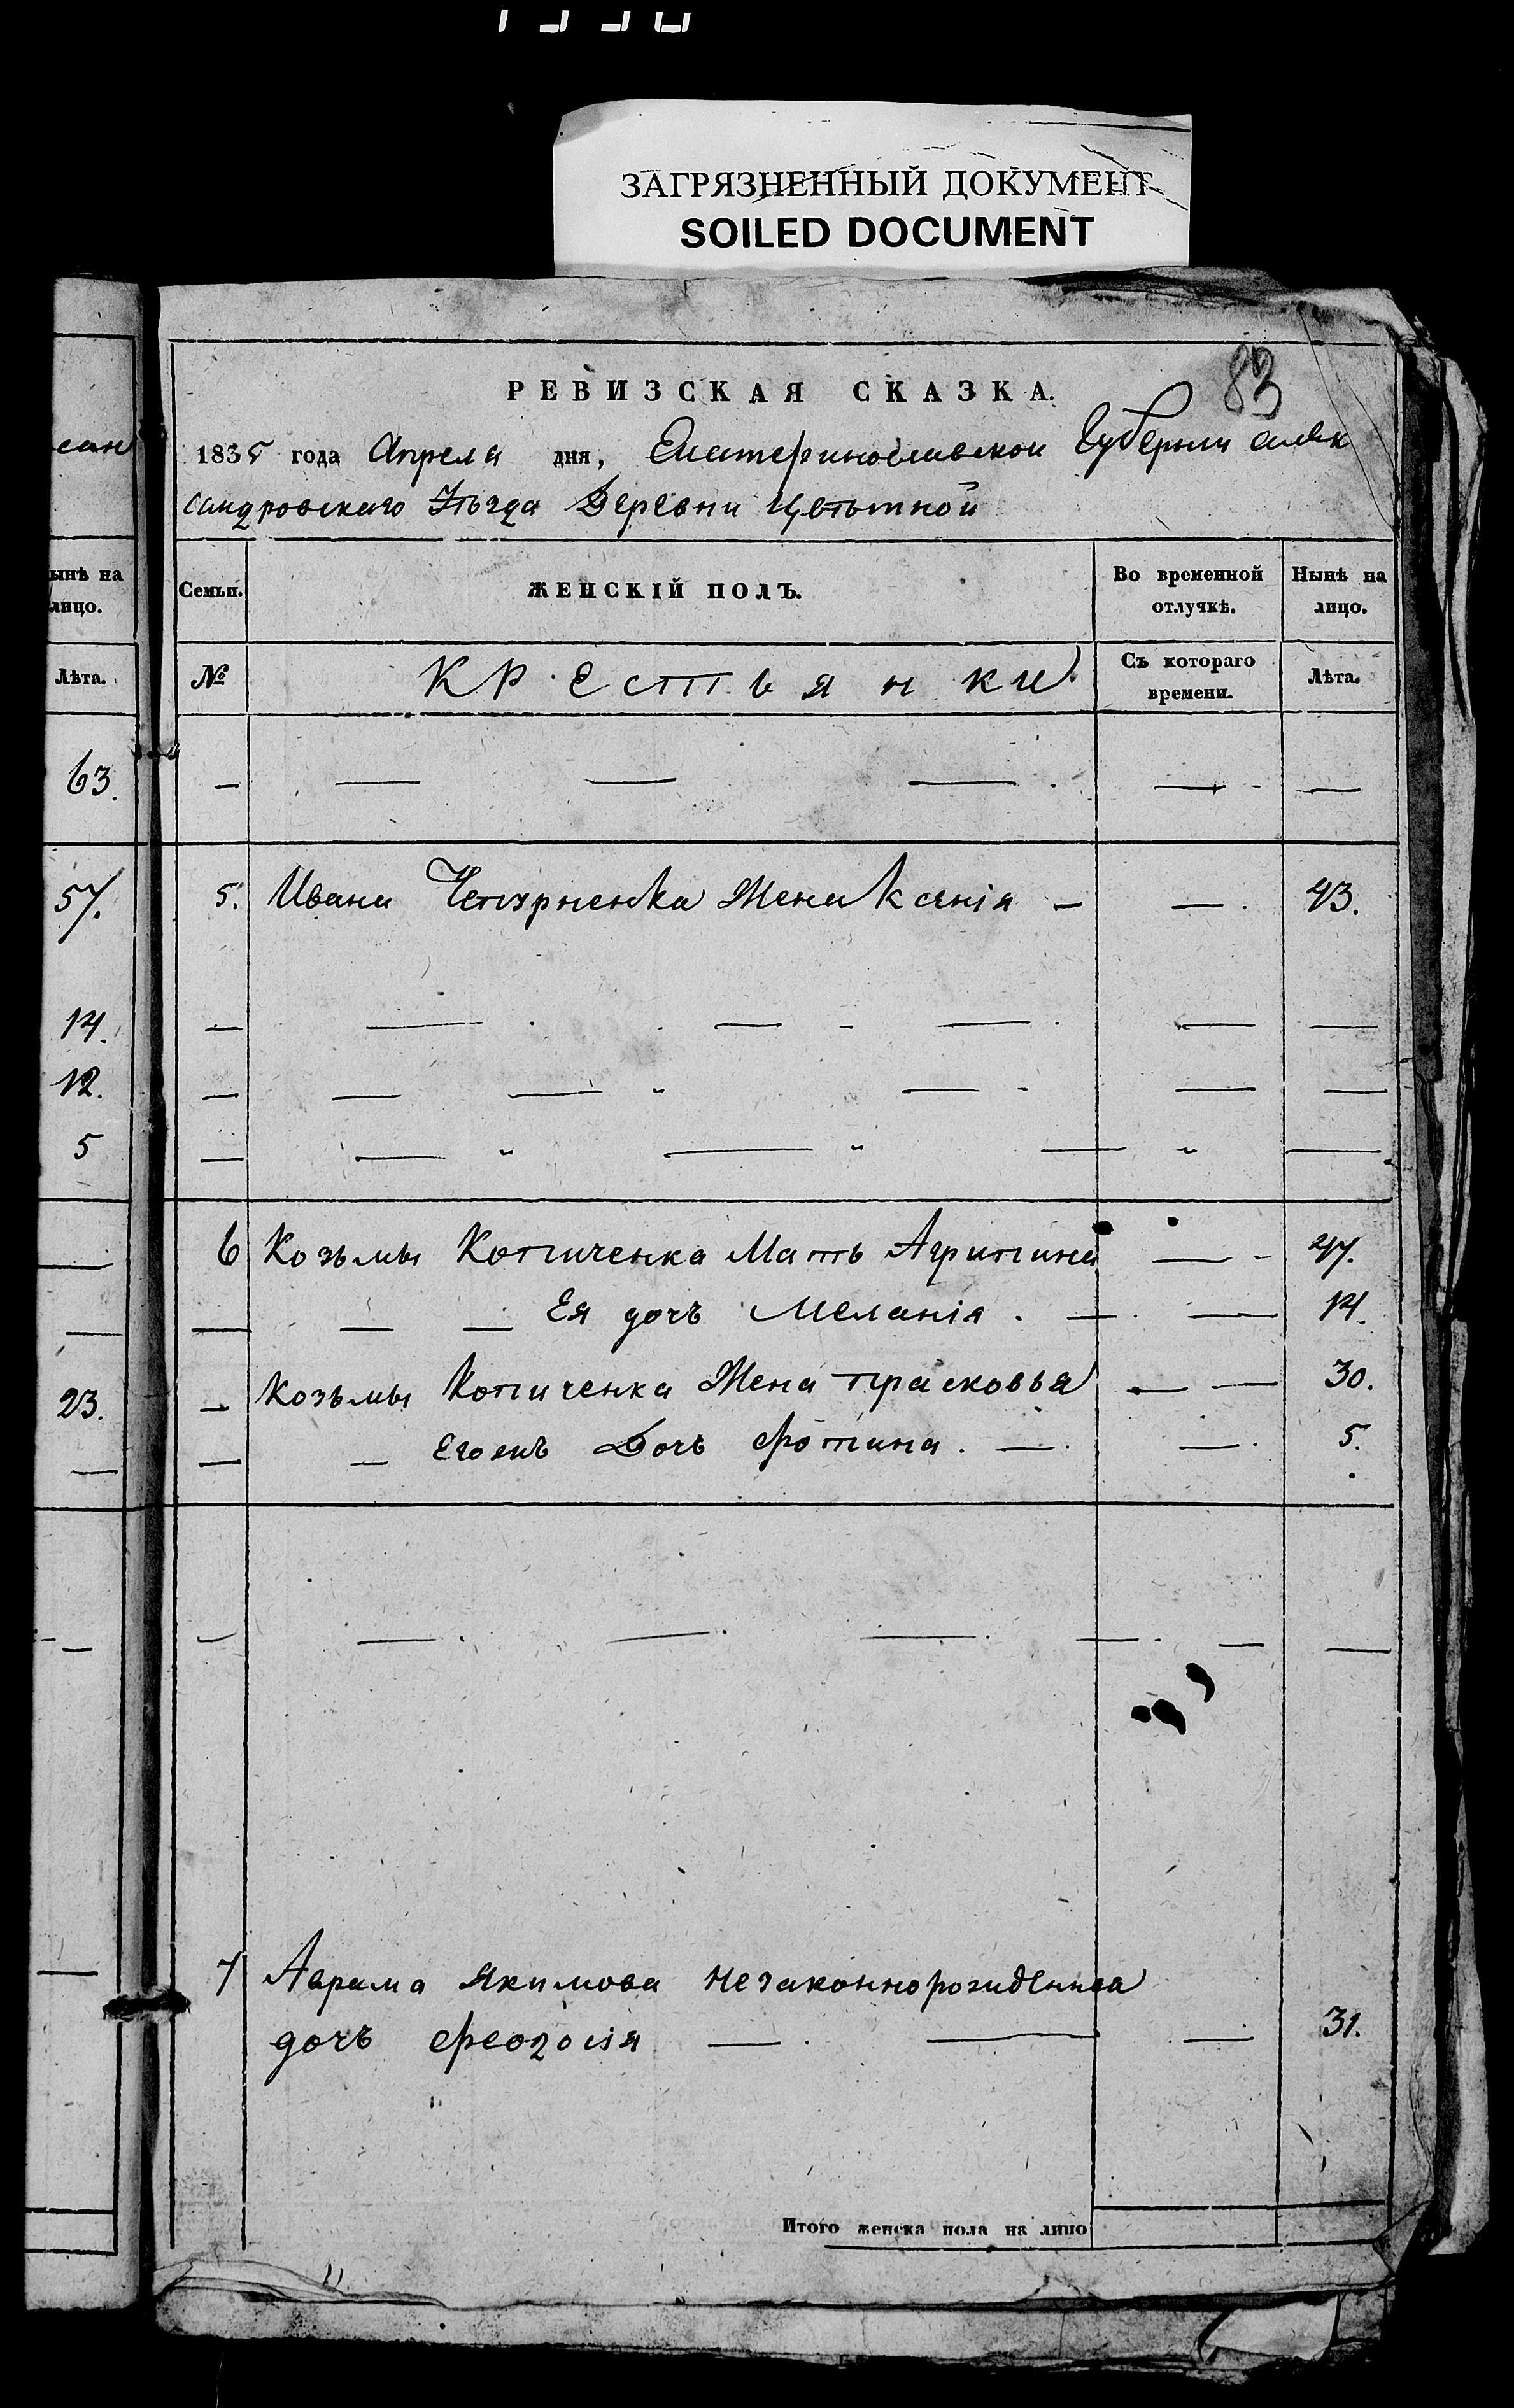 ЗАГРЯЗНЕННЫЙ ДОКУМЕНТ
SOILED DOCUMENT
83
РЕВИЗСКАЯ СКАЗКА.
1835 года Апреля дня, Екатеринославской Губернии алек
сандровскаго Уѣзда Деревни Цвѣтной
сан
ынѣ на
лицо.
Лѣта.
Семьи.
ЖЕНСКІЙ ПОЛЪ.
Во временной
отлучкѣ.
Нынѣ на
лицо.
№
Крестьянки
Съ котораго
времени.
Лѣта.
63.
— — — — — —
57. 5. Ивана Чепурненка Жена Ксенія — — 43.
14. — — — — — —
12. — — — — — —
5 — — — — —
— 6 Козьмы Котиченка Мать Агрипина — 47.
— — — — Ея дочь Меланія. — — 14.
23. — Козьмы Котиченка Жена прасковья — — 30.
— — — Егожъ Дочь Фотина. — — 5.
— — — — — — — —
— 7 Аврама Якимова незаконнорожденная
дочь Феодосія — — — 31.
Итого женска пола на лицо